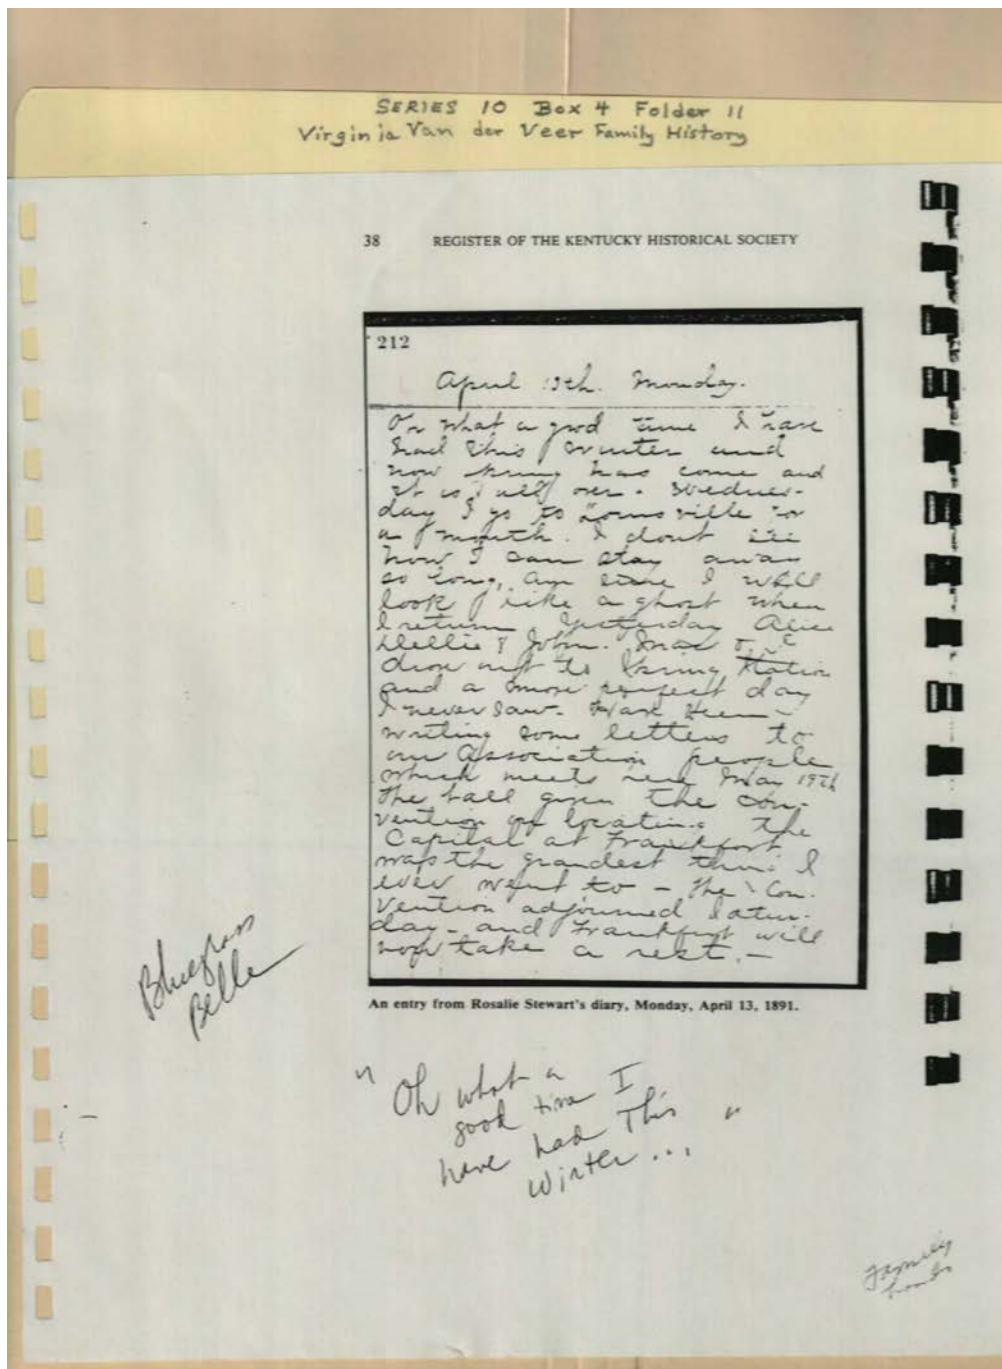 SERIES 10 Box 4 Folder 11
Virginia Van der Veer Family History
38 REGISTER OF THE KENTUCKY HISTORICAL SOCIETY
212
April 13th. Monday.
Oh what a good time I have
had this winter and
now spring has come and
it is all over. Wednes-
day I go to Louisville for
a month. I dont see
how I can stay away
so long, am sure I will
look like a ghost when
I return. Yesterday Alice
Nellie & John.
drove out to Spring Station
and a more perfect day
I never saw. Have been
writing some letters to
our Association people
which meets here May 19th
The ball given the Con-
vention on locating the
Capital at Frankfort
was the grandest thing I
ever went to - The Con-
vention adjourned Satur-
day - and Frankfort will
now take a rest. -
An entry from Rosalie Stewart's diary, Monday, April 13, 1891.
Bluegrass
Belle
"Oh what a
good time I
have had This "
winter ...
Family